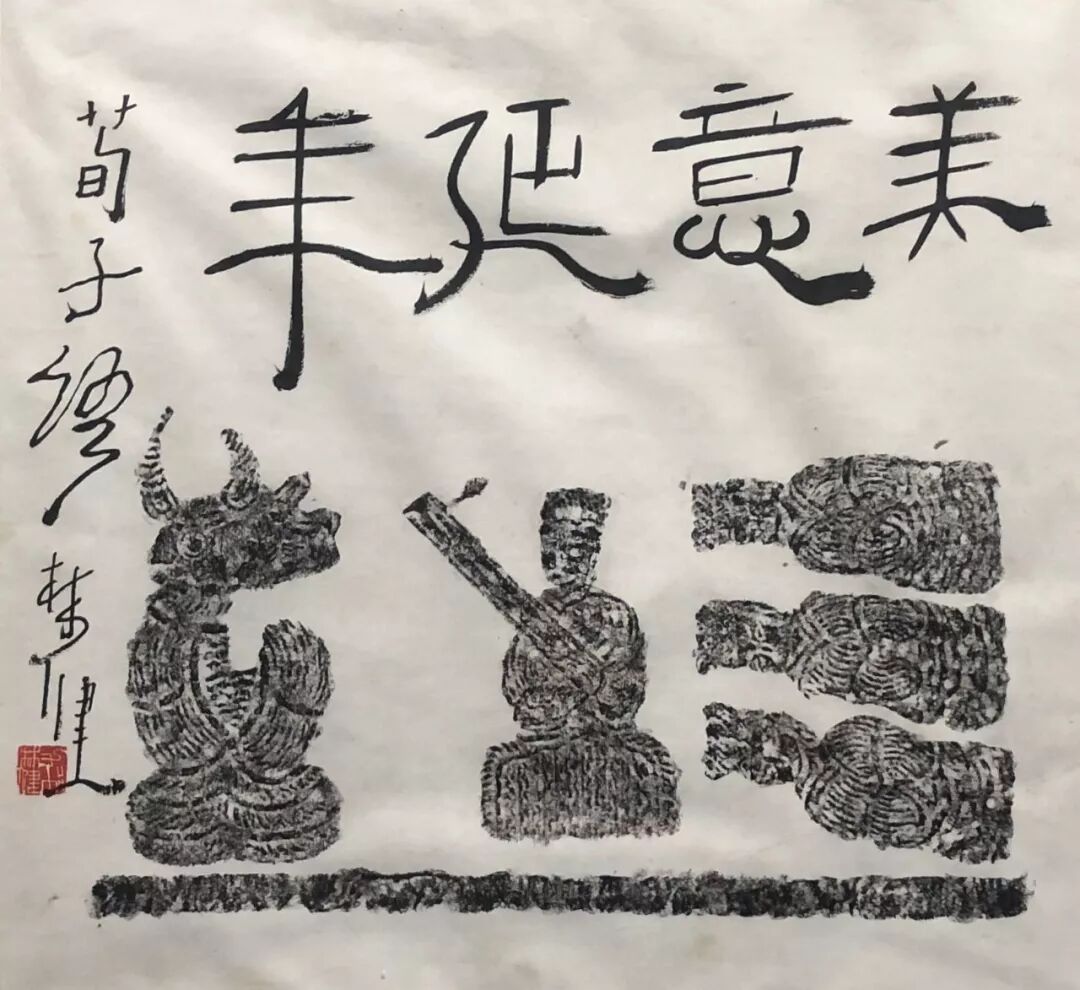 美意延年
荀子語 林健